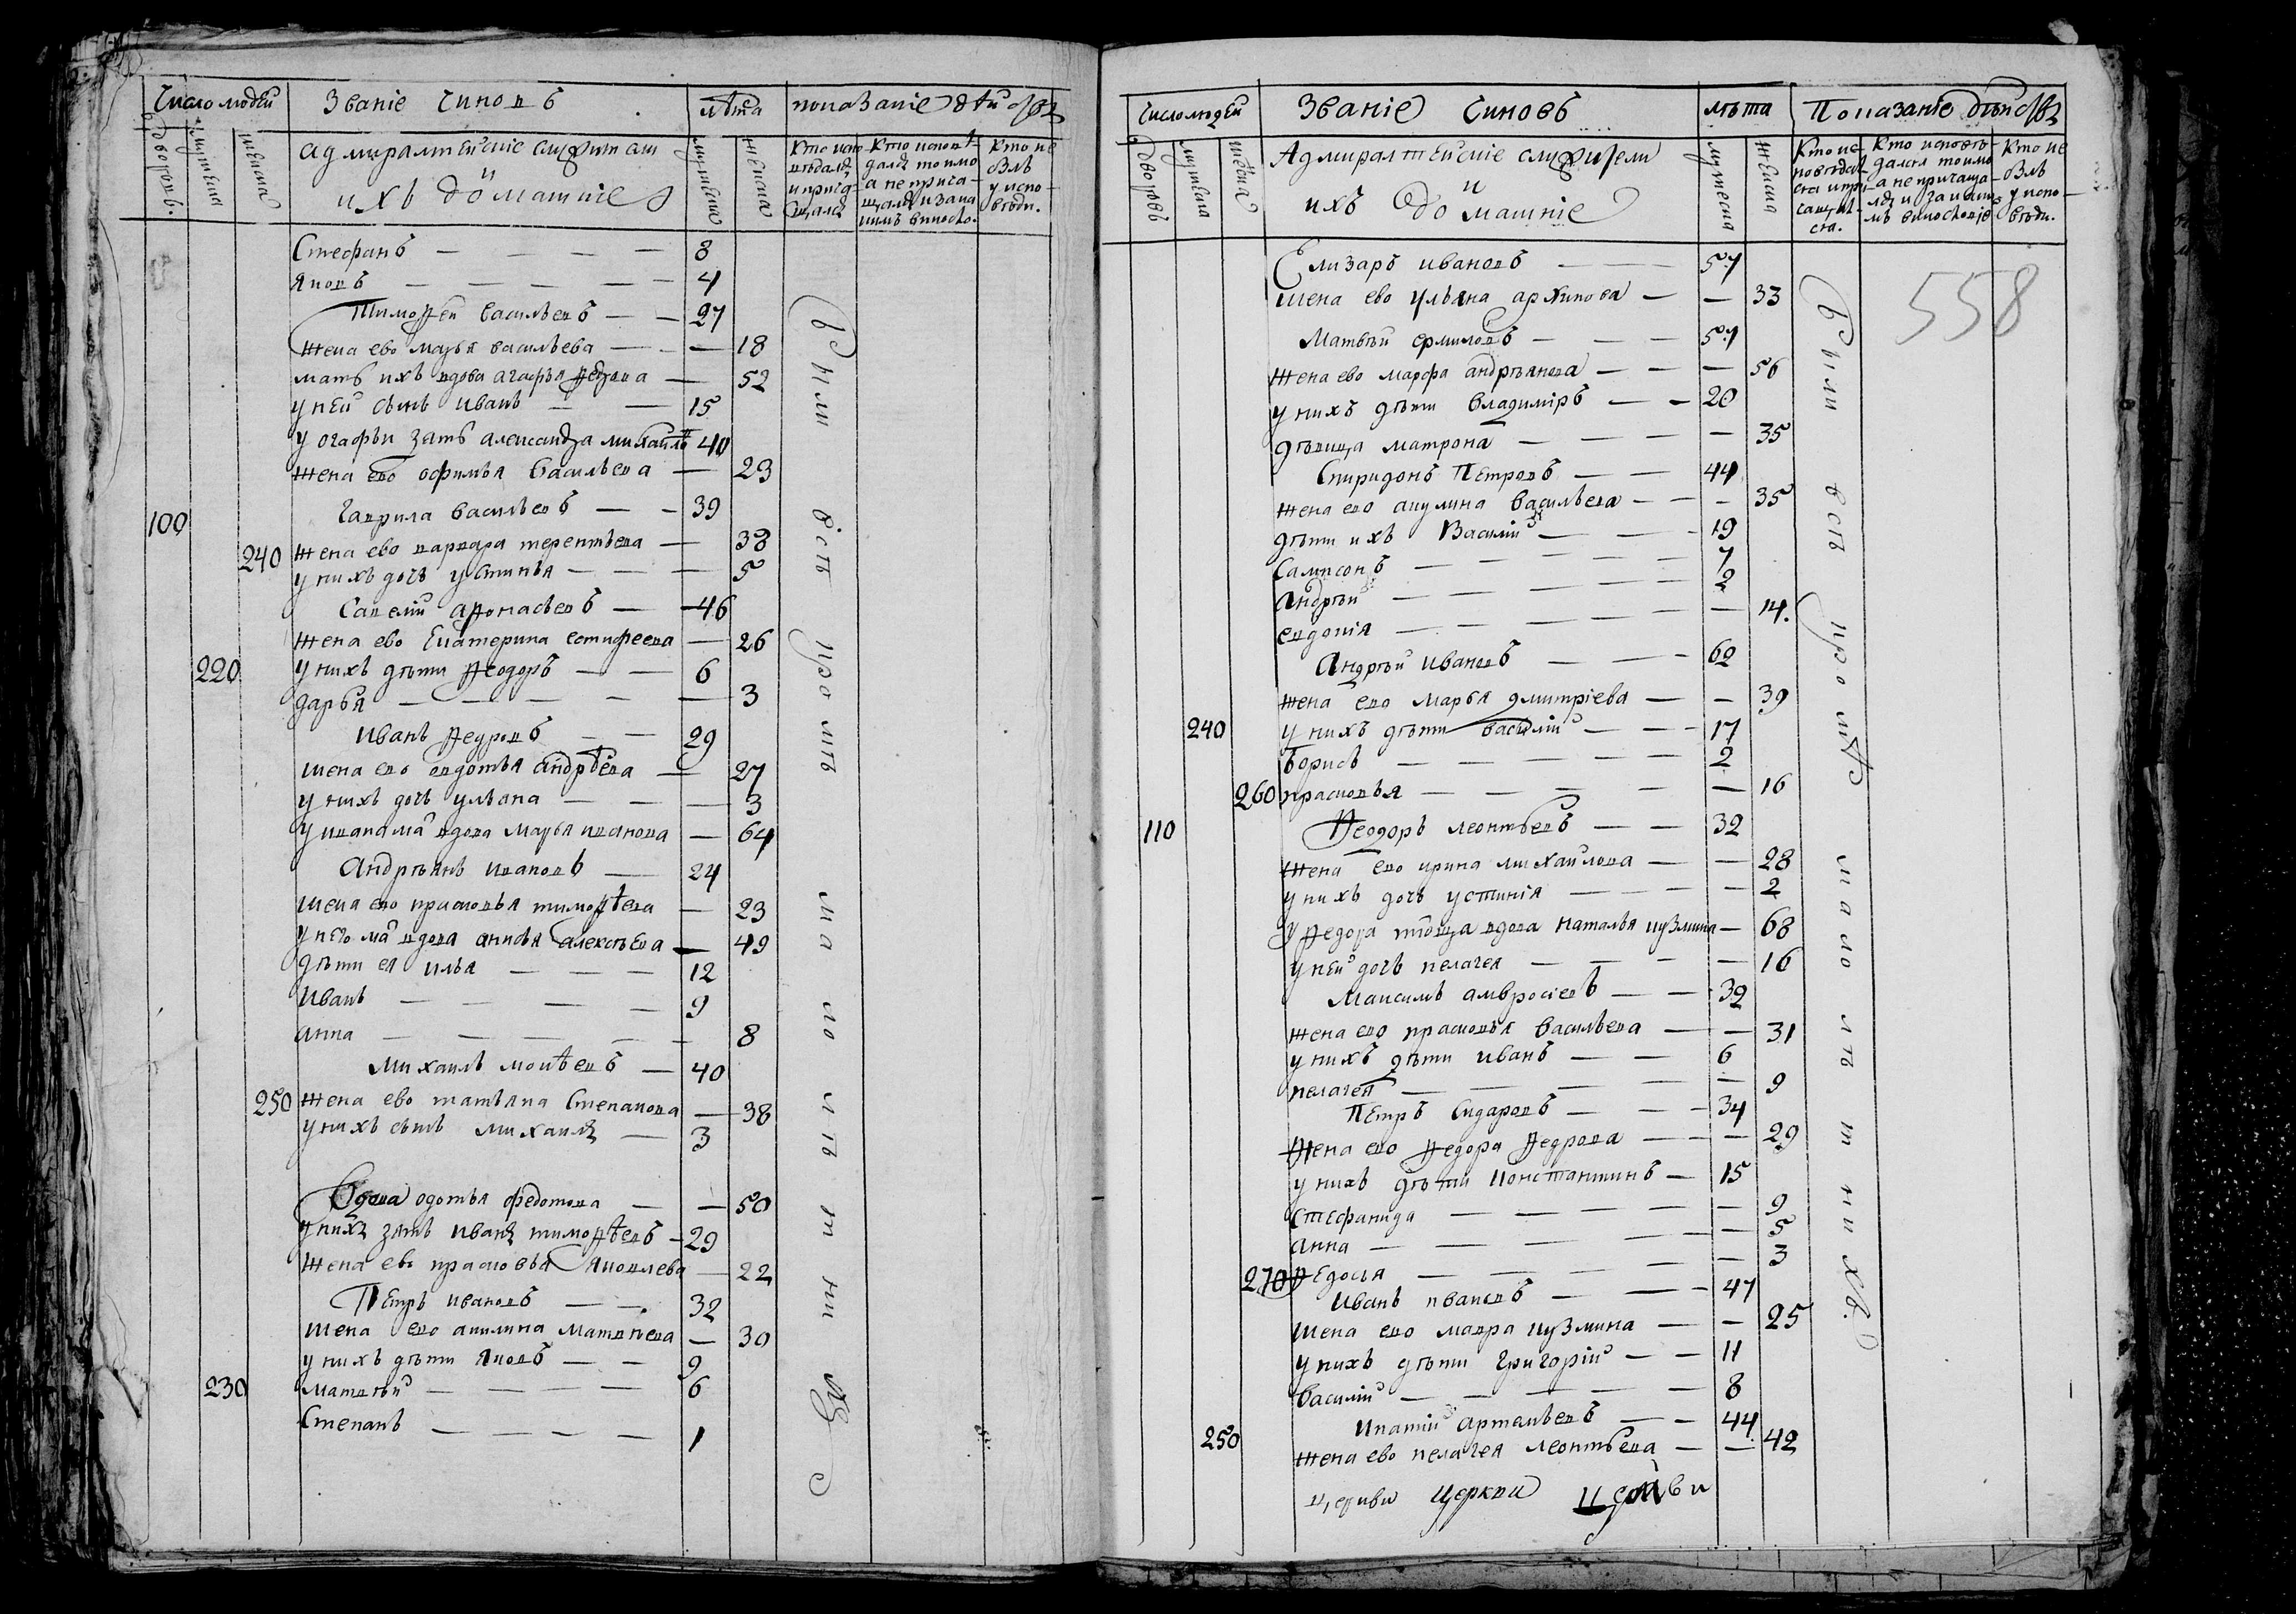 Число людей Званіе чиновъ лѣта показаніе дѣйства
дворовъ. мужеска женска
адмиралтейскіе служители
и
ихъ домашніе
мужеска женска
Кто испо- Кто исповѣ- Кто не
вѣдалъ далъ токмо былъ
и прича- а не прича- у испо-
щалъ щалъ и зака вѣди.
кимъ виносло.
Стефанъ 8
Яковъ 4
Тимоѳей Васильевъ 27
жена ево марья васильева 18
мать ихъ вдова агафья ѳедрова 52
у ней сынъ иванъ 15
у огафьи зять александра михайлъ 40
жена ево офимья васильева 23
100 Гаврила васильевъ 39
240 жена ево варвара терентьева 38
у нихъ дочь устинья 5
Савелий аѳонасьевъ 46
жена ево Екатерина естифеева 26
220 у нихъ дѣти ѳеодоръ 6
дарья 3
иванъ ѳедровъ 29
жена ево овдотья андрѣева 27
у нихъ дочь ульяна 3
у ивана ма вдова марья иванова 64
андрѣянъ ивановъ 24
жена ево прасковья тимоѳѣева 23
у него ма вдова анисья алексѣева 49
дѣти ея илья 12
иванъ 9
анна 8
михаилъ моисѣевъ 40
250 жена ево татьяна степанова 38
у нихъ сынъ михаилъ 3
Вдова одотья федотова 50
у нихъ зять иванъ тимоѳѣевъ 29
жена ево прасковья яковлева 22
Петръ ивановъ 32
жена ево акилина матвѣева 30
у нихъ дѣти яковъ 9
230 матвѣй 6
Степанъ 1
были всѣ кромѣ малолѣтнихъ
Число людей Званіе чиновъ лѣта Показаніе дѣйства
дворовъ мужеска женска
Адмиралтейскіе служители
и
ихъ домашніе
мужеска женска
Кто ис- Кто исповѣ- Кто не
повѣдал- дался токмо былъ
ся и при- а не причаща- у испо-
чащал- лъ и за каки- вѣди.
ся. мъ винословіе
558
Елизаръ ивановъ 57
жена ево ульяна архипова 33
Матвѣй ермиловъ 57
жена ево марфа андрѣянова 56
у нихъ дѣти владимиръ 20
дѣвица матрона 35
Спиридонъ Петровъ 44
жена ево акулина васильева 35
дѣти ихъ Василій 19
Сампсонъ 7
андрѣй 2
евдокія 14.
Андрѣй ивановъ 62
жена ево марья дмитріева 39
240 у нихъ дѣти василій 17
борисъ 2
260 прасковья 16
110 ѳеодоръ леонтьевъ 32
жена ево ирина михайлова 28
у нихъ дочь устинія 2
у ѳедора тіоща вдова наталья кузмина 68
у ней дочь пелагея 16
Максимъ амвросіевъ 32
жена ево прасковья васильева 31
у нихъ дѣти иванъ 6
пелагея 9
Петръ сидаровъ 34
жена ево ѳедора ѳедрова 29
у нихъ дѣти константинъ 15
стефанида 9
анна 5
270 ѳедосья 3
иванъ ивановъ 47
жена ево мавра кузмина 25
у нихъ дѣти григорій 11
василій 8
ипатій артемьевъ 44
250 жена ево пелагея леонтьева 42
церкви церкви церкви
были всѣ кромѣ малолѣтнихъ.